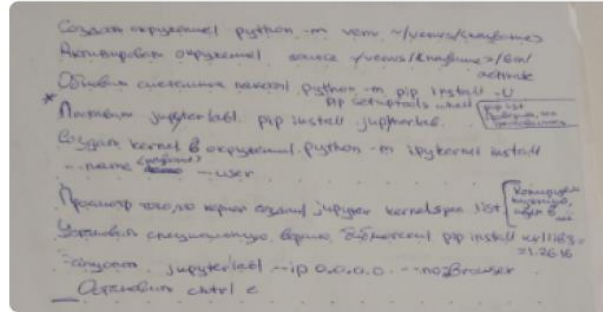 Создать окружение python -m venv ~/venvs/<название>
Активировать окружение source ~/venvs/<название>/bin/
activate
Обновить системные пакеты python -m pip install -U
pip setuptools wheel pip list
* Поставить jupyterlab. pip install jupyterlab.
Создать kernel в окружении. python -m ipykernel install
--name --user
Просмотр какого керна создан jupyter kernelspec list
Установить специальную версию библиотеки pip install
=1.26.16
jupyter lab --ip 0.0.0.0 --no-browser
Остановить chtrl c